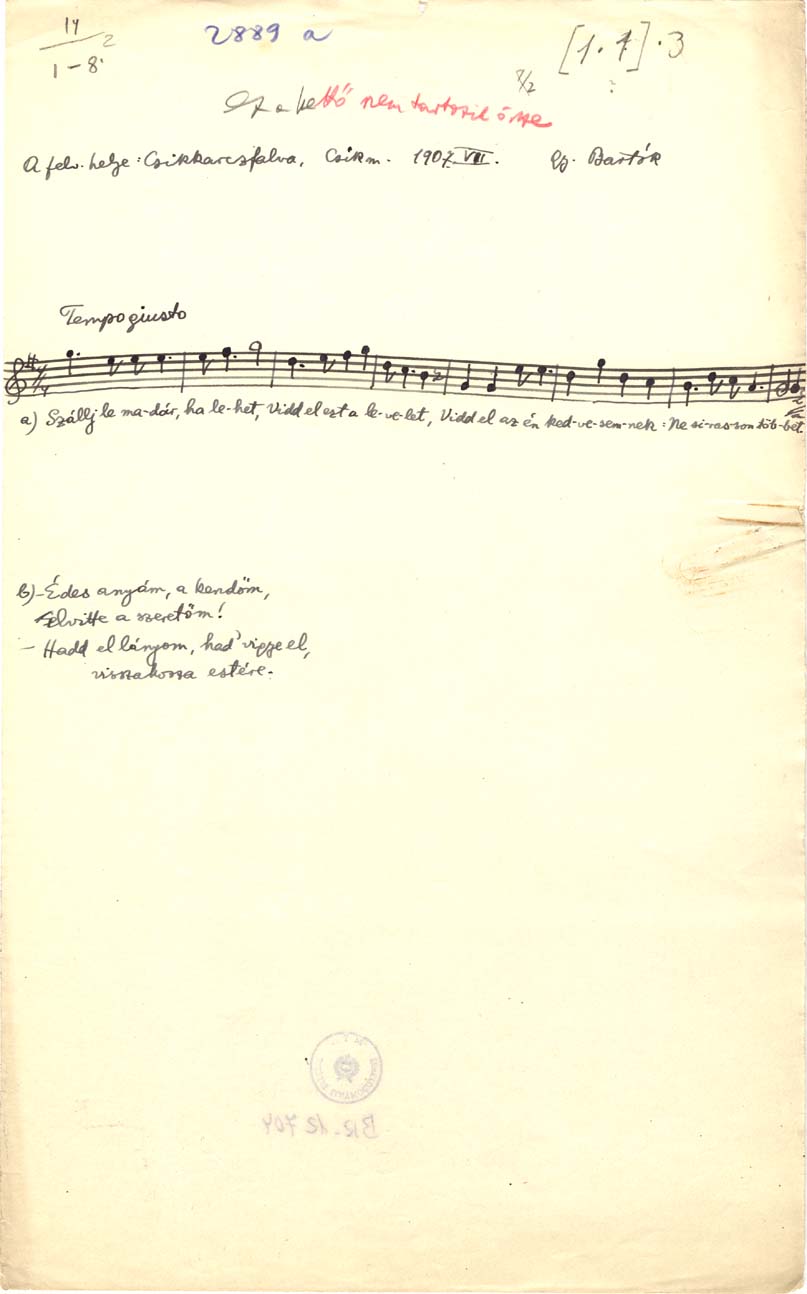 14
1-8. 2
2889 a
[1. 1]. 3
?
8/2
Ez a kettő nem tartozik össze
A felv. helye: Csikkarcsfalva, Csikm. 1907. VII. Gy. Bartók
Tempo giusto
a) Szállj le ma-dár, ha le-het, Vidd el ezt a le-ve-let, Vidd el az én ked-ve-sem-nek: Ne si-ras-son töb-bet.
b) - Édes anyám, a kendőm,
Elvitte a szeretőm!
- Hadd el lányom, had' vigye el,
visszahozza estére.
BR-12 704